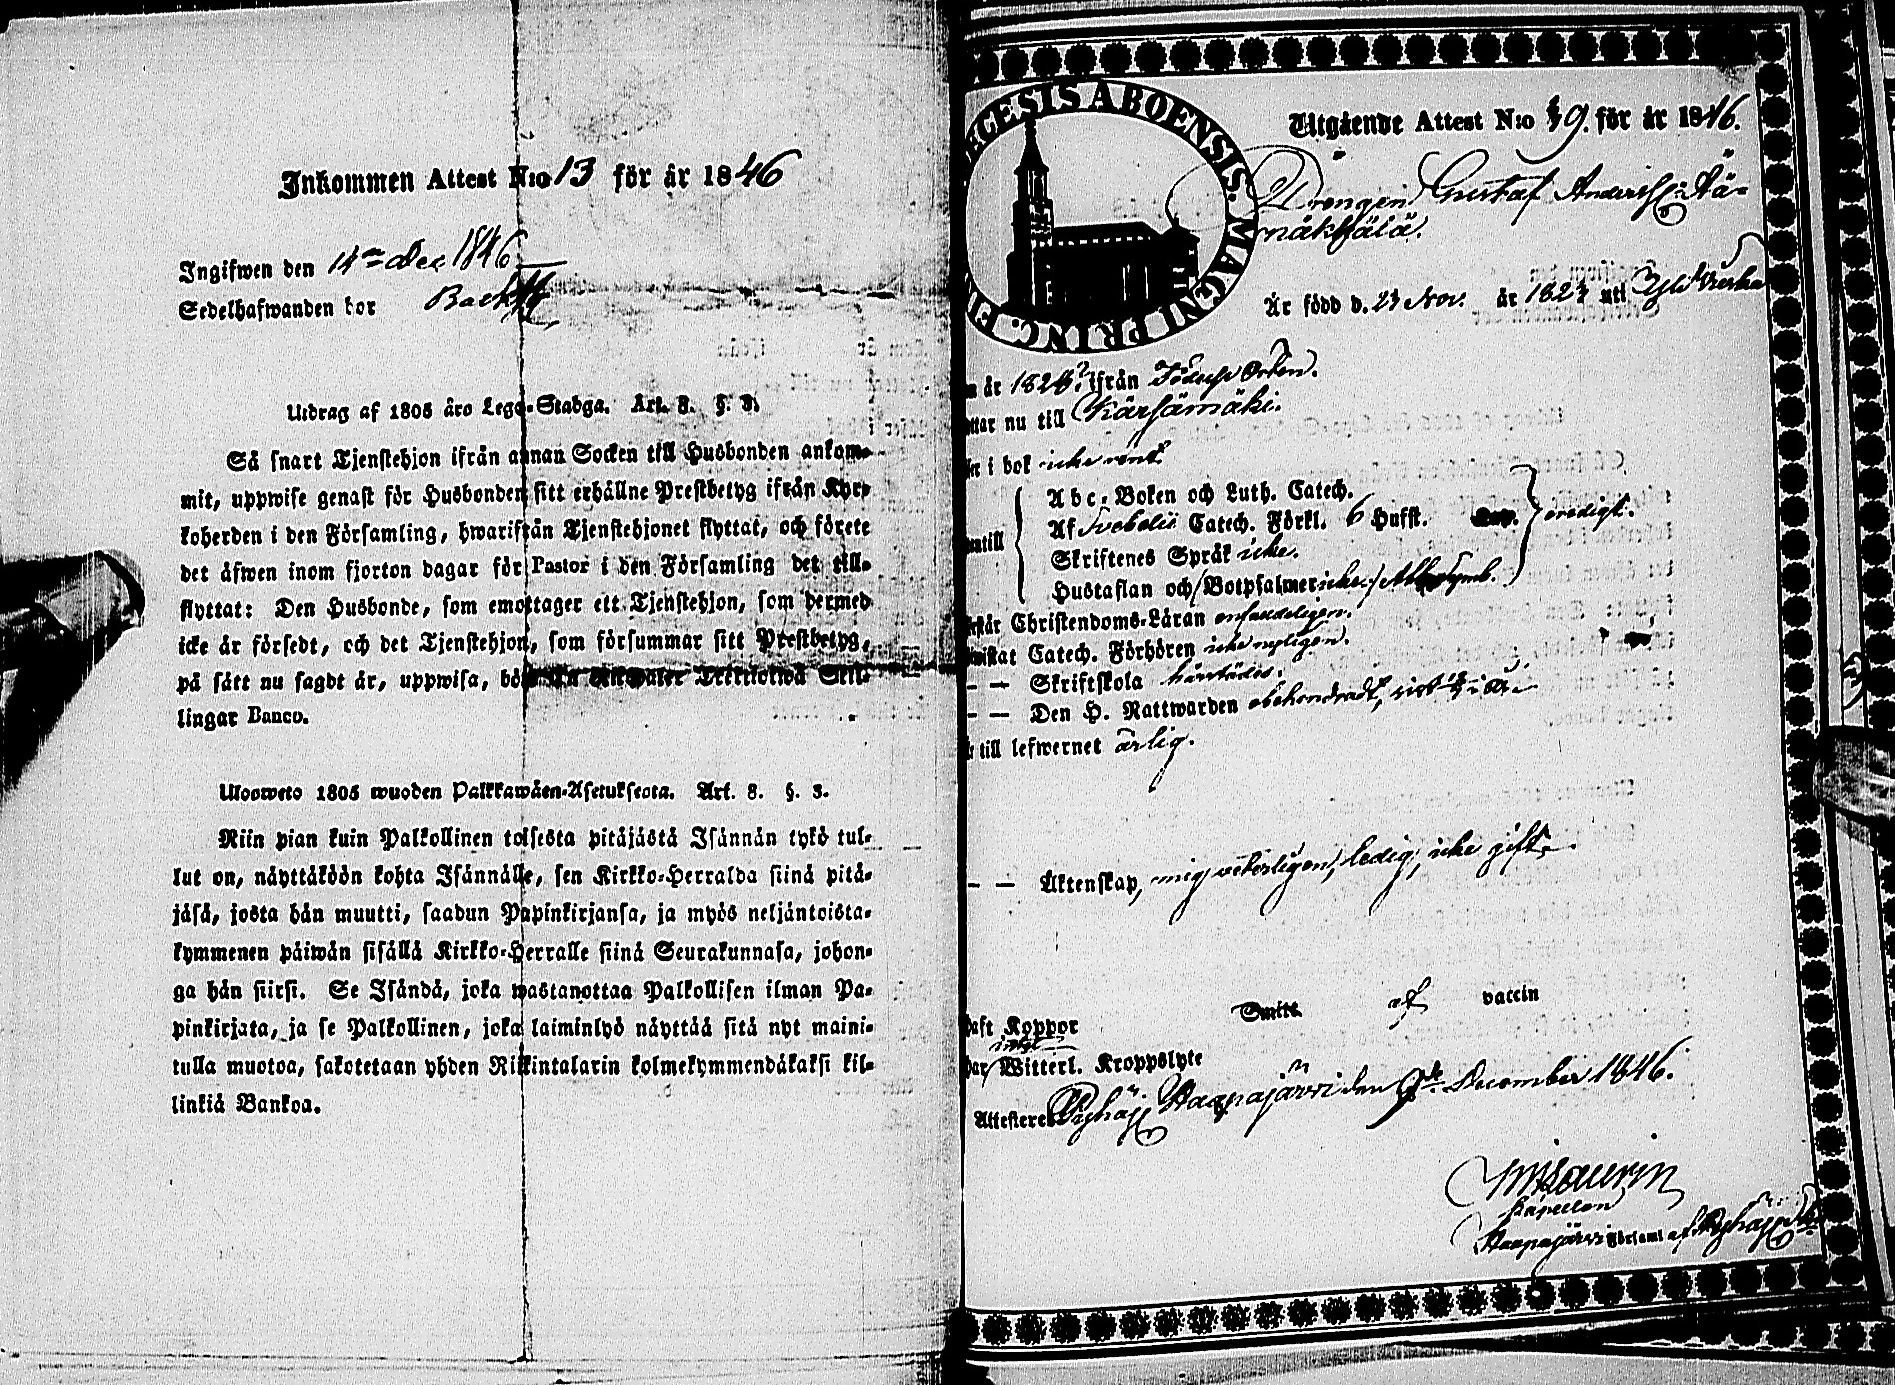 Inkommen Attest N:o 13 för år 1846
Ingifwen den 14de Dec 1846
Sedelhafwanden bor
Utdrag af 1805 års Lego-Stadga. Art. 8. §. 3.
Så snart Tjenstehjon ifrån annan Socken till Husbonden ankom-
mit, uppwise genast för Husbonden sitt erhållne Prestbetyg ifrån Kyr-
koherden i den Församling, hwarifrån Tjenstehjonet flyttat, och förete
det äfwen inom fjorton dagar för Pastor i den Församling det till-
flyttat: Den Husbonde, som emottager ett Tjenstehjon, som dermed
icke är försedt, och det Tjenstehjon, som försummar sitt Prestbetyg,
på sätt nu sagdt är, uppwisa, Skil-
lingar Banco.
Uloosweto 1805 wuoden Palkkawäen-Asetuksesta. Art. 8. §. 3.
Niin pian kuin Palkollinen toisesta pitäjästä Isännän tykö tul-
lut on, näyttäköön kohta Isännälle, sen Kirkko-Herralda siinä pitä-
jäsä, josta hän muutti, saadun Papinkirjansa, ja myös neljäntoista-
kymmenen päiwän sisällä Kirkko-Herralle siinä Seurakunnasa, johon-
ga hän siirsi. Se Isändä, joka wastanottaa Palkollisen ilman Pa-
pinkirjata, ja se Palkollinen, joka laiminlyö näyttää sitä nyt maini-
tulla muotoa, sakotetaan yhden Riikintalarin kolmekymmendäkaksi kil-
linkiä Bankoa.
ECESIS ABOENSIS. MAGNI PRINC. FI
Utgående Attest N:o 9. för år 1846.
Drengen Gustaf Anderss: Kä-
näkkälä.
Är född d. 23 Nov. år 1823 uti
n år ifrån Födelse Orten.
ttar nu till Kärsämäki.
er i bok icke rent.
Abc-Boken och Luth. Catech.
Af Svebelii Catech. Förkl. 6 Hufst.
Skriftenes Språk icke.
ntill
Hustaflan och Botpsalmer icke, Ath. Symb.
oredigt.
står Christendoms-Läran enfaldeligen.
wistat Catech. Förhören icke nyligen.
– – Skriftskola
– – Den H. Nattwarden obehindradt, sist
till lefwernet ärlig.
– – Äktenskap, mig veterligen, ledig, icke gift.
aft Koppor Smitt. af vaccin
intet
har Witterl. Kroppslyte
Attesterer Pyhäj: Haapajärvi den 9de December 1846.
Kapellan
Haapajärvi Församl af Pyhäj: